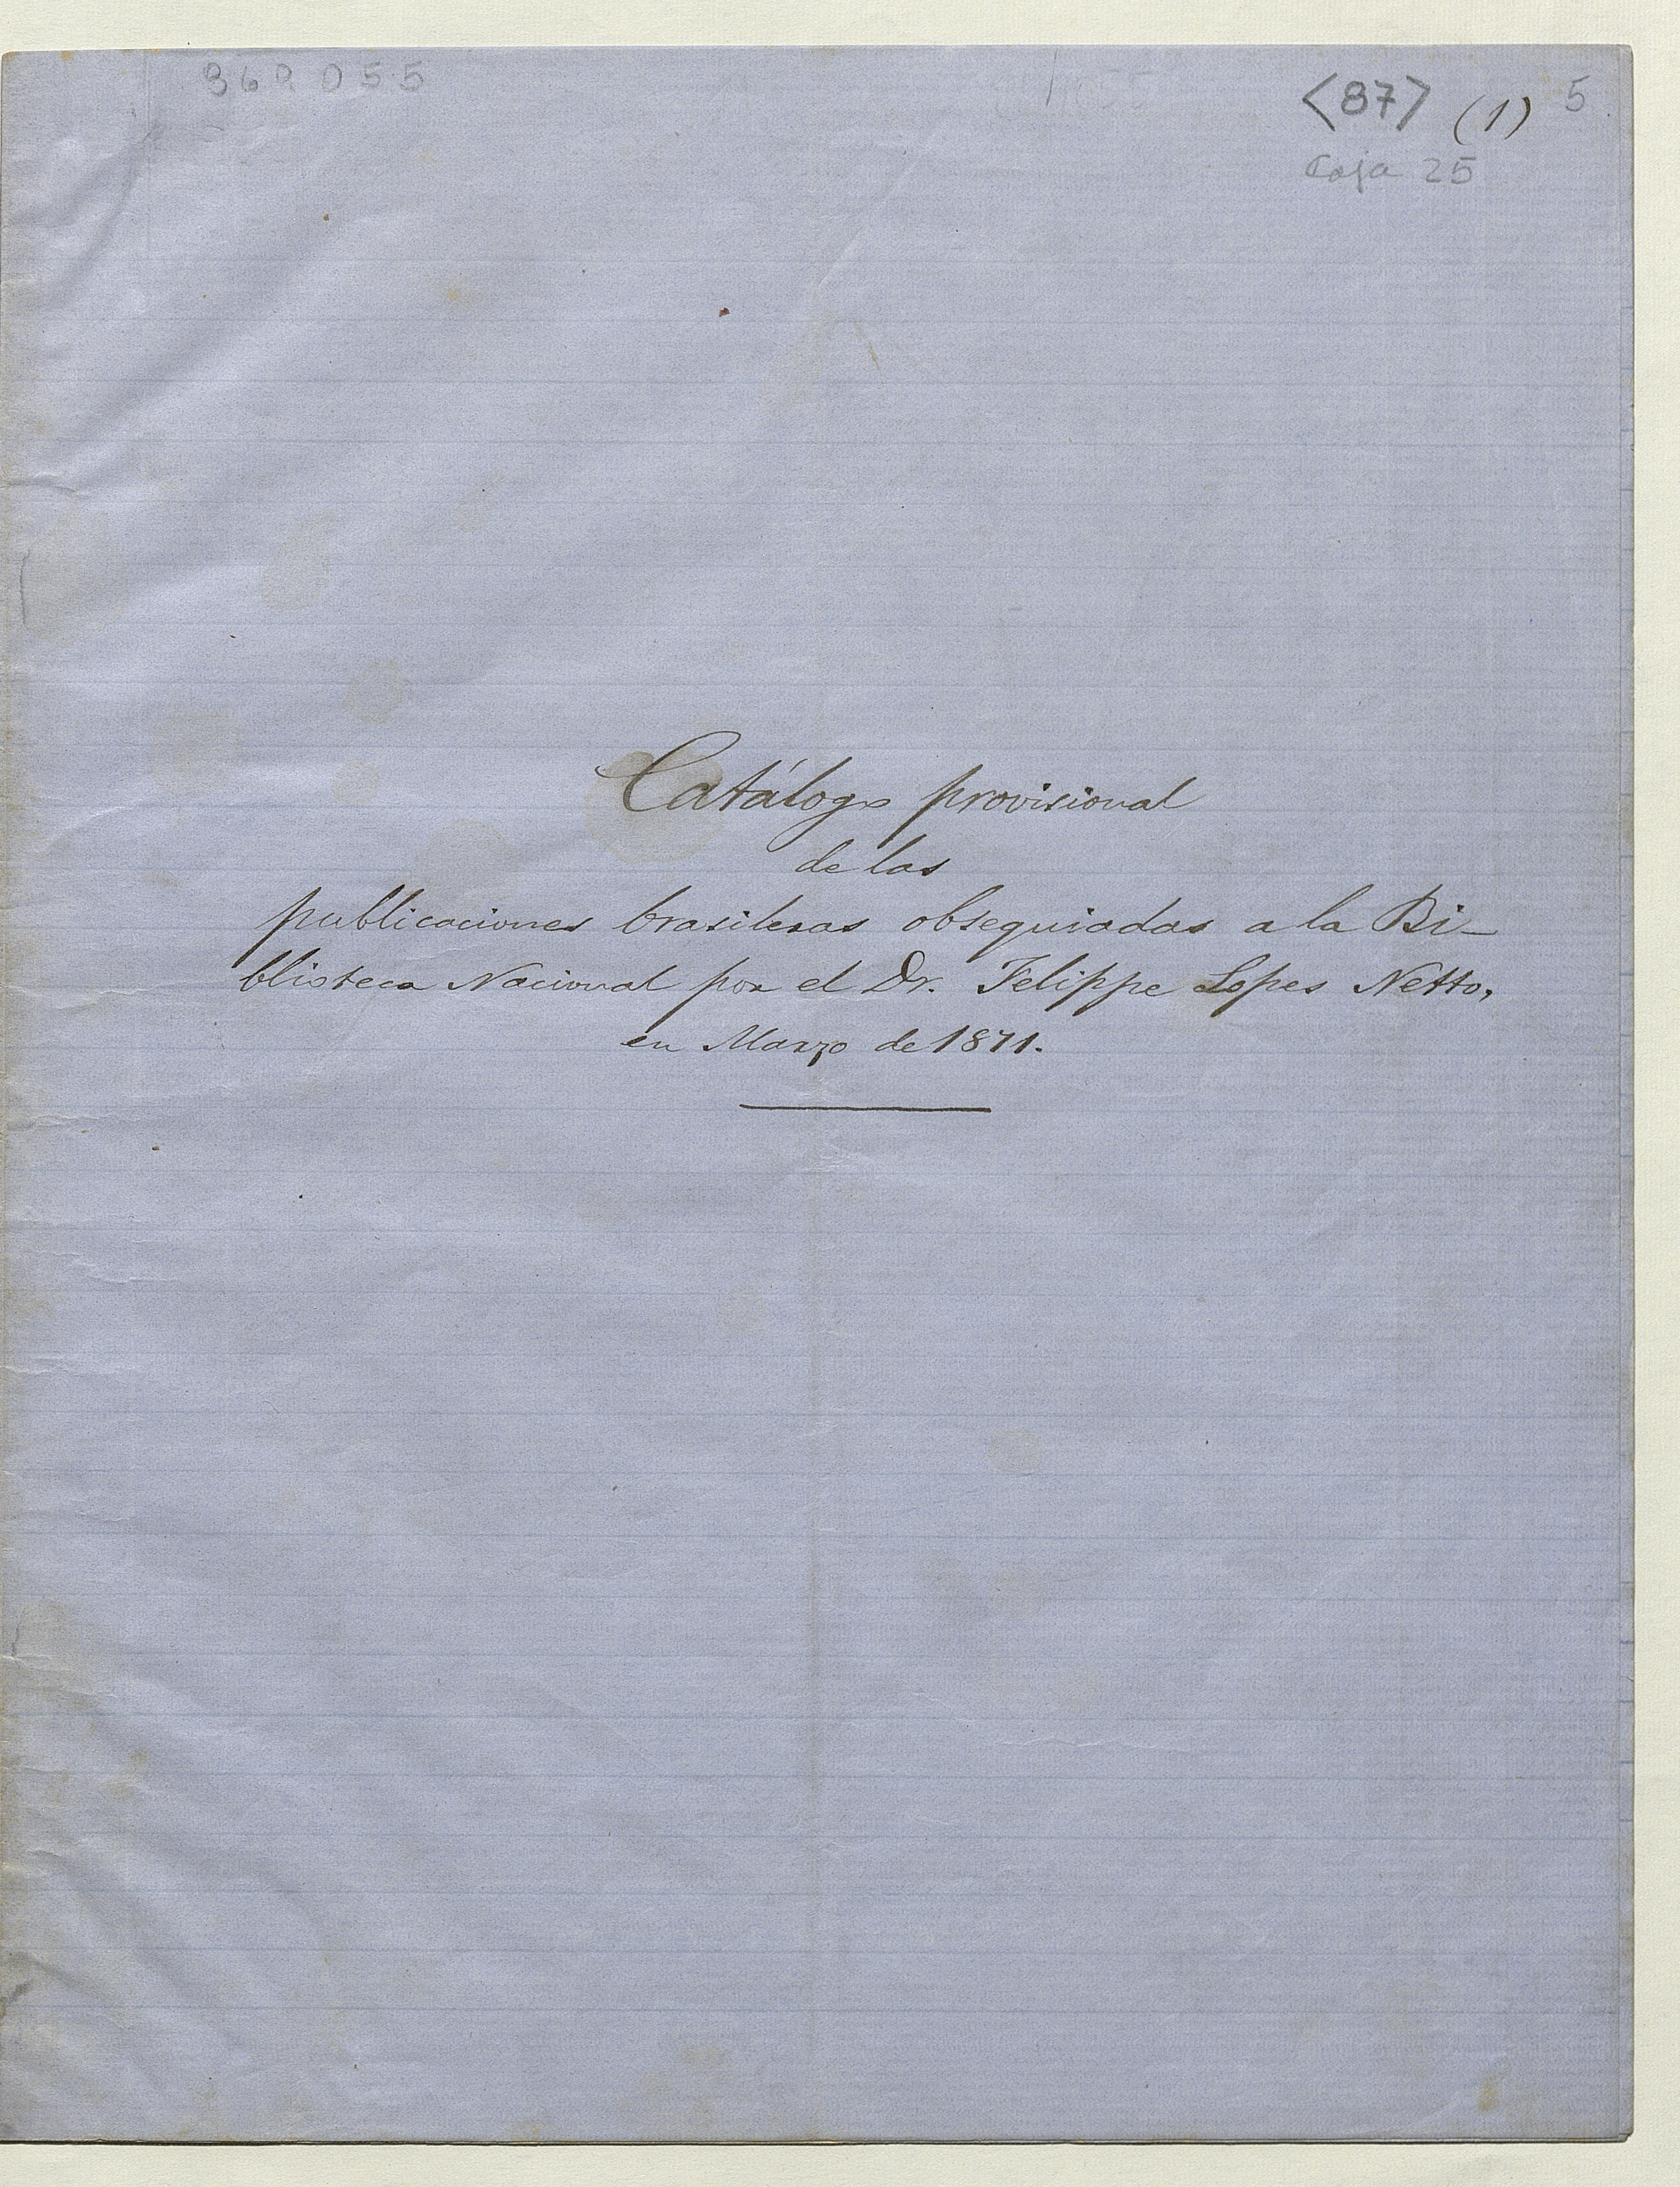 <87> (1) 5
Caja 25
Catálogo provisional
de las
publicaciones brasileras obsequiadas a la Bi-
blioteca Nacional por el Dr. Felippe Lopes Netto,
en Marzo de 1871.